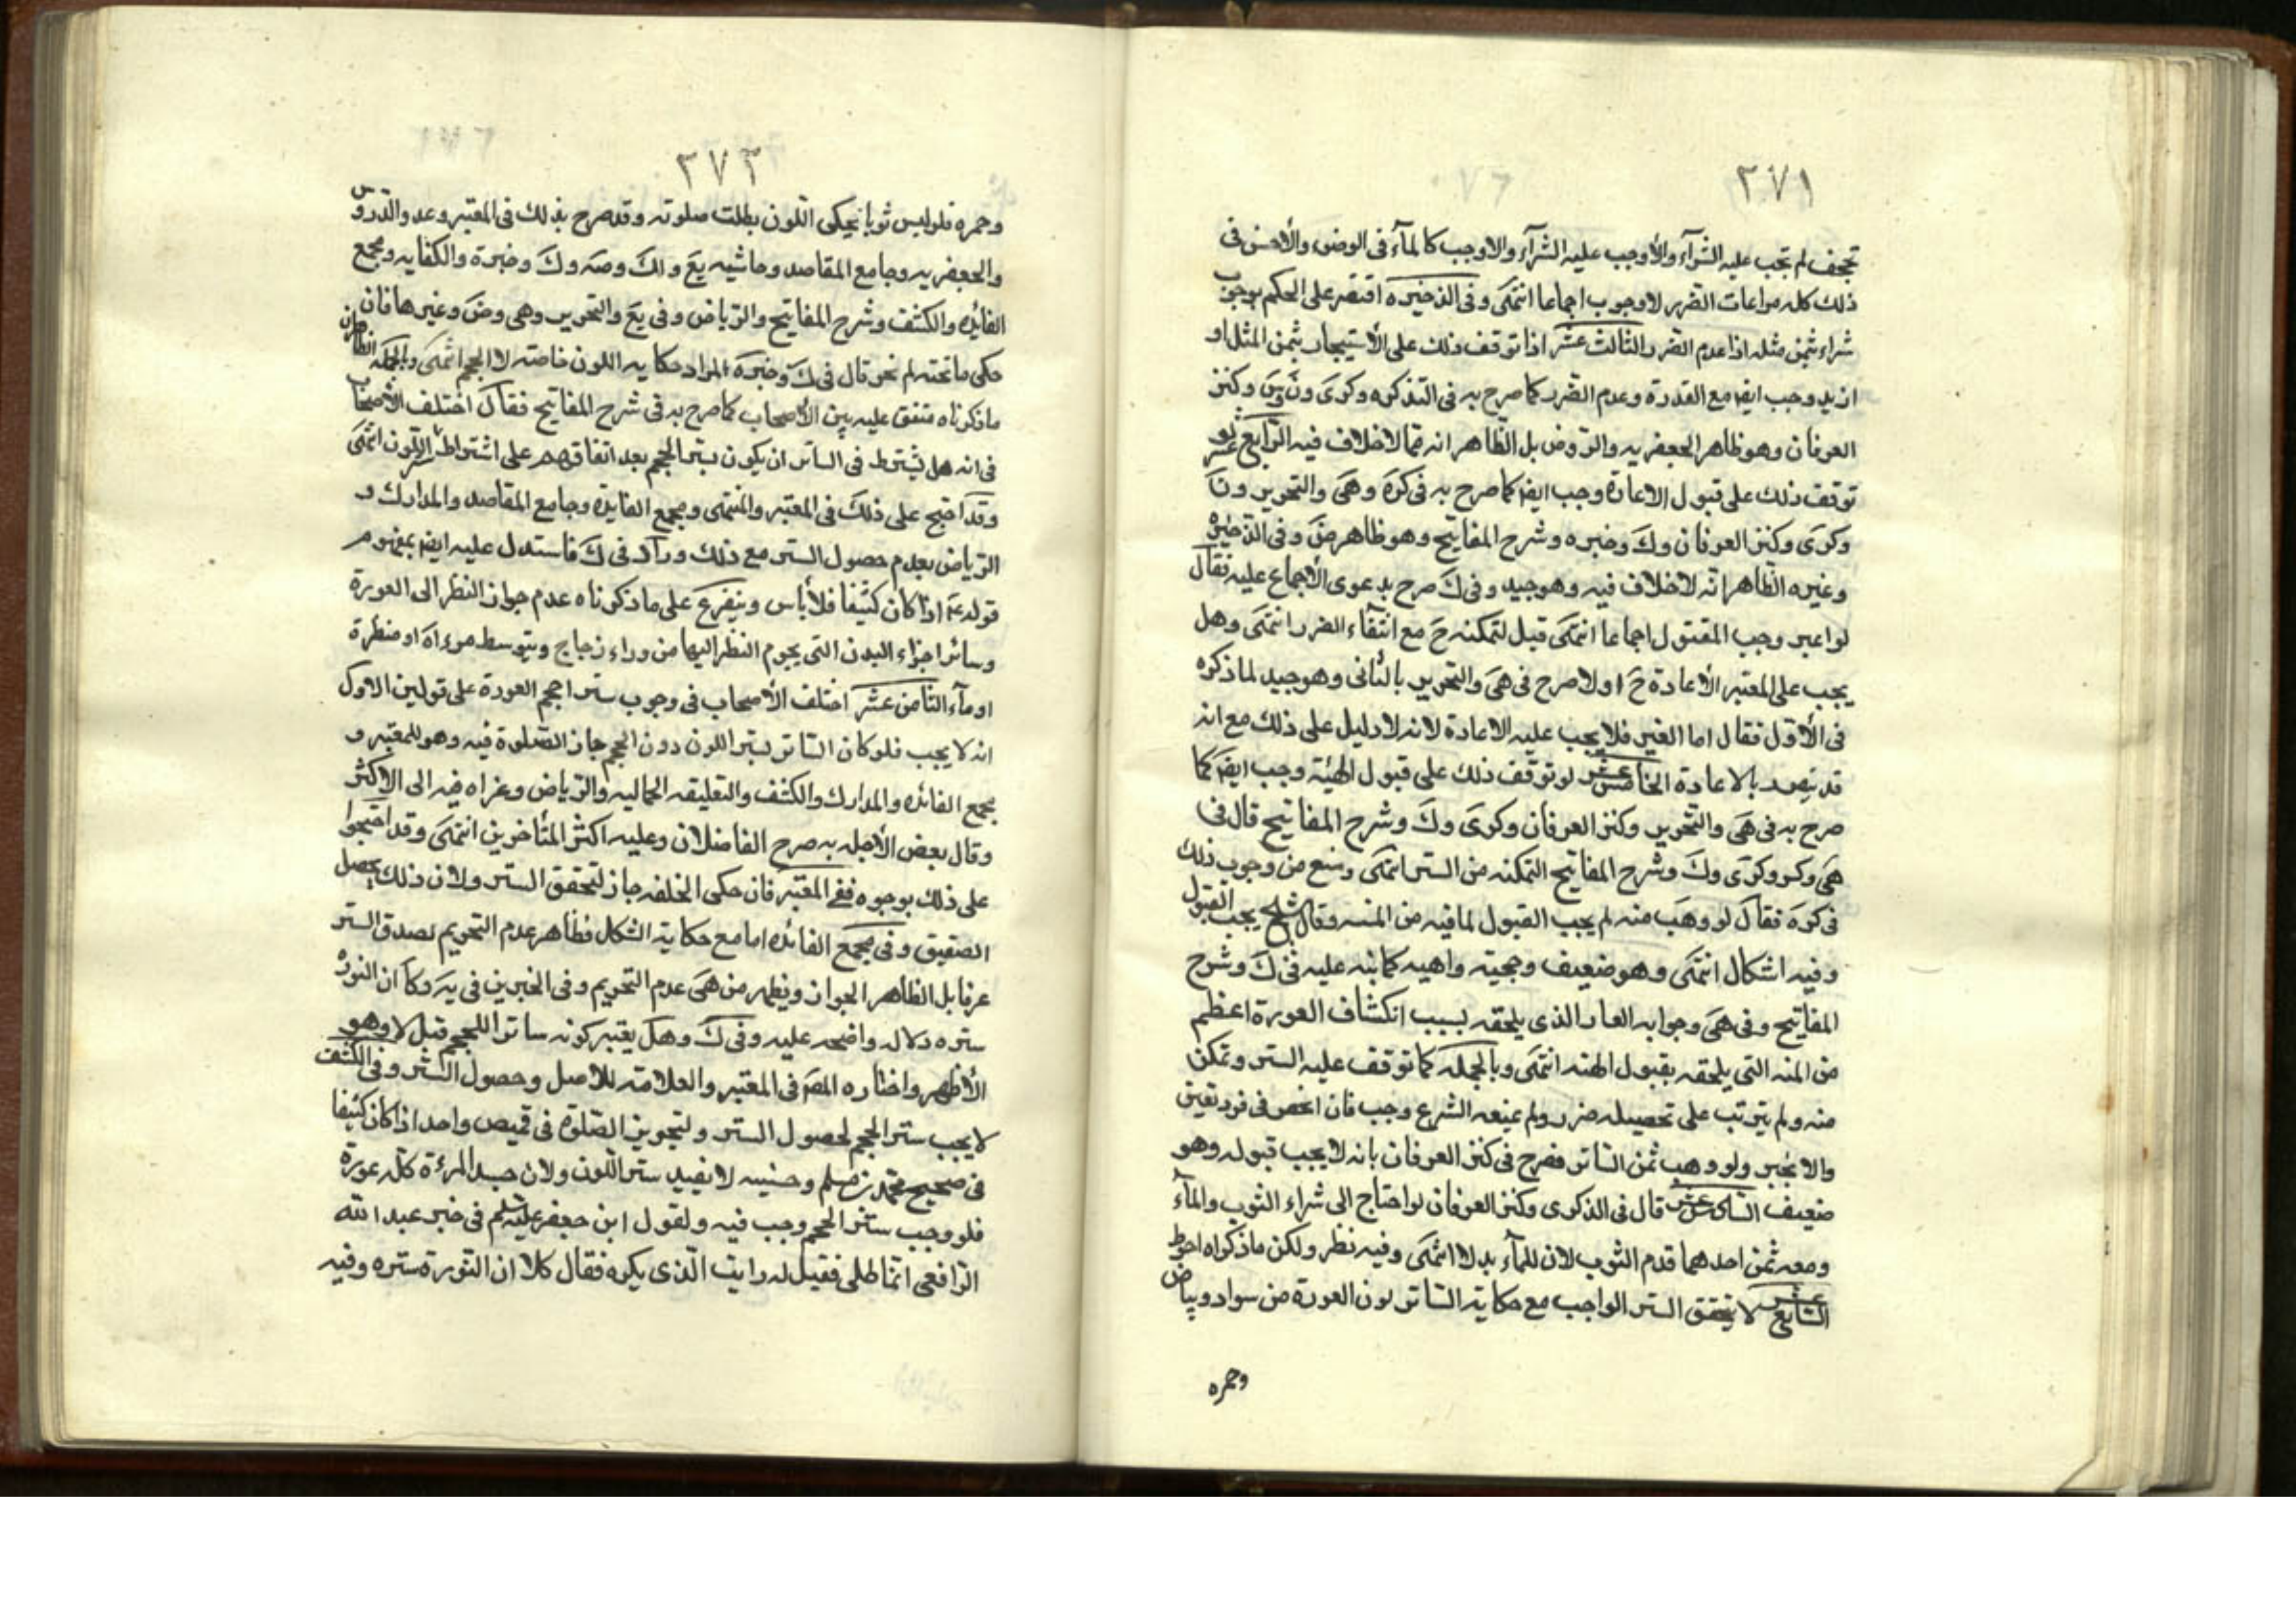 ٢٧١
تجحف لم تجب عليه الشرآء والأوجب عليه الشرآء والاوجب كالمآء فى الوضوء والأحسن فى
ذلك كله مراعات الضرر لاوجوب اجماعا انتهى وفى الذخيره اقتصر على الحكم بوجوب
شراء بثمن مثله اذا عدم الضرر الثالث عشر اذا توقف ذلك على الأستيجار بثمن المثل او
ازيد وجب ايضا مع القدرة وعدم الضرر كما صرح به فى التذكره وكرى ون وس وكنز
العرفان وهو ظاهر الجعفريه والروض بل الظاهر انه مما لاخلاف فيه الرابع عشر لو
توقف ذلك على قبول الاعارة وجب ايضا كما صرح به فى كره وهى والتحرير ون
وكرى وكنز العرفان وك وخيره وشرح المفاتيح وهو ظاهر ض وفى الذخيره
وغيره الظاهر انه لاخلاف فيه وهو جيد وفى ك صرح بدعوى الأجماع عليه فقال
لو اعير وجب القبول اجماعا انتهى قيل لتمكنه ح مع انتفآء الضرر انتهى وهل
يجب على المعير الأعادة ح او لا صرح فى هى والتحرير بالثانى وهو جيد لما ذكره
فى الأول فقال اما الغير فلا يجب عليه الاعادة لانه لا دليل على ذلك مع انه
قد بالاعادة الخامس عشر لو توقف ذلك على قبول الهبة وجب ايضا كما
صرح به فى هى والتحرير وكنز العرفان وكرى وك وشرح المفاتيح قال فى
هى وكر وكرى وك وشرح المفاتيح لتمكنه من الستر انتهى ومنع من وجوب ذلك
فى كره فقال لو وهب منه لم يجب القبول لما فيه من المنه وقال الشيخ يجب القبول
وفيه اشكال انتهى وهو ضعيف وحجيته واهيه كما نبه عليه فى ك وشرح
المفاتيح وفى هى وجوابه العار الذى يلحقه بسبب انكشاف العورة اعظم
من المنه التى يلحقه بقبول الهبه انتهى وبالجمله كما توقف عليه الستر وتمكن
منه ولم يترتب على تحصيله ضرر ولم يمنعه الشرع وجب فان انحصر فى فرد تعين
والا تخير ولو وهب ثمن الساتر فصرح فى كنز العرفان بانه لا يجب قبوله وهو
ضعيف السادس عشر قال فى الذكرى وكنز العرفان لو احتاج الى شراء الثوب والمآء
ومعه ثمن احدهما قدم الثوب لان للمآء بدلا انتهى وفيه نظر ولكن ما ذكراه احوط
السابع عشر لا يتحقق الستر الواجب مع حكاية الساتر لون العورة من سواد وبياض
وحمره
٢٧٣
وحمره فلو لبس ثوبا يحكى اللون بطلت صلوته وقد صرح بذلك فى المعتبر وعد والدروس
والجعفريه وجامع المقاصد وحاشيه يع ولك وصه وك وخيرة والكفايه ومجمع
الفائده والكشف وشرح المفاتيح والرياض وفى يع والتحرير وهى وض وغيرها فان
حكى ما تحته لم نحو قال فى ك وخيره المراد حكايه اللون خاصته لا الحجم انتهى وبالجمله الظاهر ان
ما ذكرناه متفق عليه بين الأصحاب كما صرح به فى شرح المفاتيح فقال اختلف الأصحاب
فى انه هل يشترط فى الساتر ان يكون يستر الحجم بعد اتفاقهم على اشتراط ستر اللون انتهى
وقد احتج على ذلك فى المعتبر والمنتهى ومجمع الفايدة وجامع المقاصد والمدارك و
الرياض بعدم حصول الستر مع ذلك وزاد فى ك فاستدل عليه ايضا بمفهوم
قوله ع اذا كان كثيفا فلا بأس ويتفرع على ما ذكرناه عدم جواز النظر الى العورة
وسائر اجزاء البدن التى يحرم النظر اليها من وراء زجاج وبتوسط مرءاة او منظرة
او مآء الثامن عشر اختلف الأصحاب فى وجوب ستر احجم العورة على قولين الاول
انه لا يجب فلو كان الساتر يستر اللون دون الحجم جاز الصلوة فيه وهو للمعتبر و
مجمع الفائده والمدارك والكشف والتعليقه الجماليه والرياض وعزاه فيه الى الاكثر
وقال بعض الأجله به صرح الفاضلان وعليه اكثر المتأخرين انتهى وقد احتجوا
على ذلك بوجوه ففى المعتبر فان حكى الخلقه جاز لتحقق الستر ولان ذلك يحصل
الصفيق وفى مجمع الفائده اما مع حكاية الشكل فظاهر عدم التحريم لصدق الستر
عرفا بل الظاهر الجواز ويظهر من هى عدم التحريم وفى الخبرين فى يه وكا ان النوره
ستره دلاله واضحه عليه وفى ك وهل يعتبر كونه ساترا للحجم قيل لا وهو
الأظهر واختاره المصـ فى المعتبر والعلامه للاصل وحصول الستر وفى الكشف
لا يجب ستر الحجم لحصول الستر ولتجويز الصلوة فى قميص واحد اذا كان كثيفا
فى صحيح محمد بن مسلم وحسنيه لا يفيد ستر اللون ولان جسد المرءة كله عورة
فلو وجب ستر الحجم وجب فيه ولقول ابن جعفر عليه السلم فى خبر عبد الله
الرافعى اتما طلى فقيل له رايت الذى يكره فقال كلا ان النورة ستره وفيه